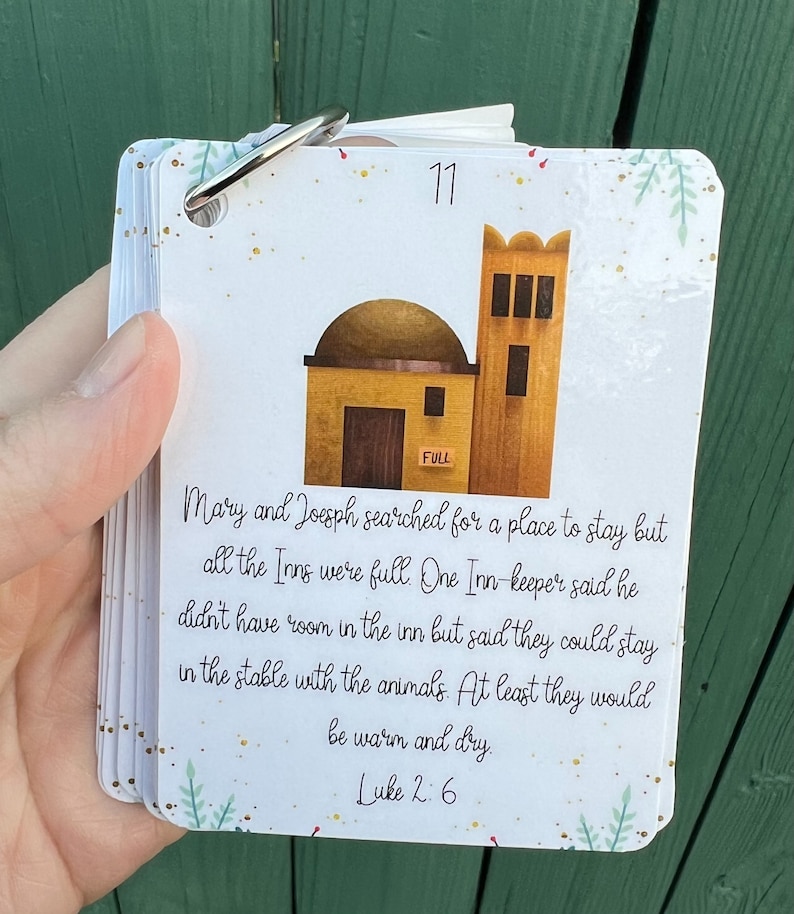 11
FULL
Mary and Joesph searched for a place to stay but
all the Inns were full. One Inn-keeper said he
didn't have room in the inn but said they could stay
in the stable with the animals. At least they would
be warm and dry.
Luke 2: 6